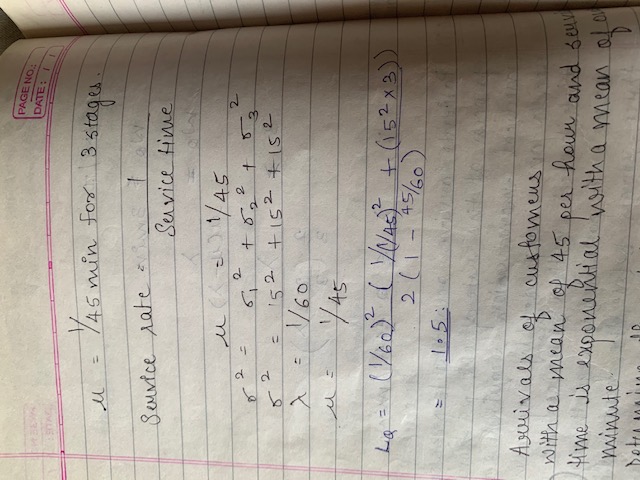 PAGE NO.:
DATE: / /
μ = 1/45 min for 3 stages.
Service rate = 1
Service time
μ = 1/45
σ² = σ₁² + σ₂² + σ₃²
σ² = 15² + 15² + 15²
λ = 1/60
μ = 1/45
LQ = (1/60)² (1/(1/45)² + (15² × 3))
2(1 - 45/60)
= 1.5:
Arrivals of customers
with a mean of 45 per hour and
time is exponential with a mean of
minute.